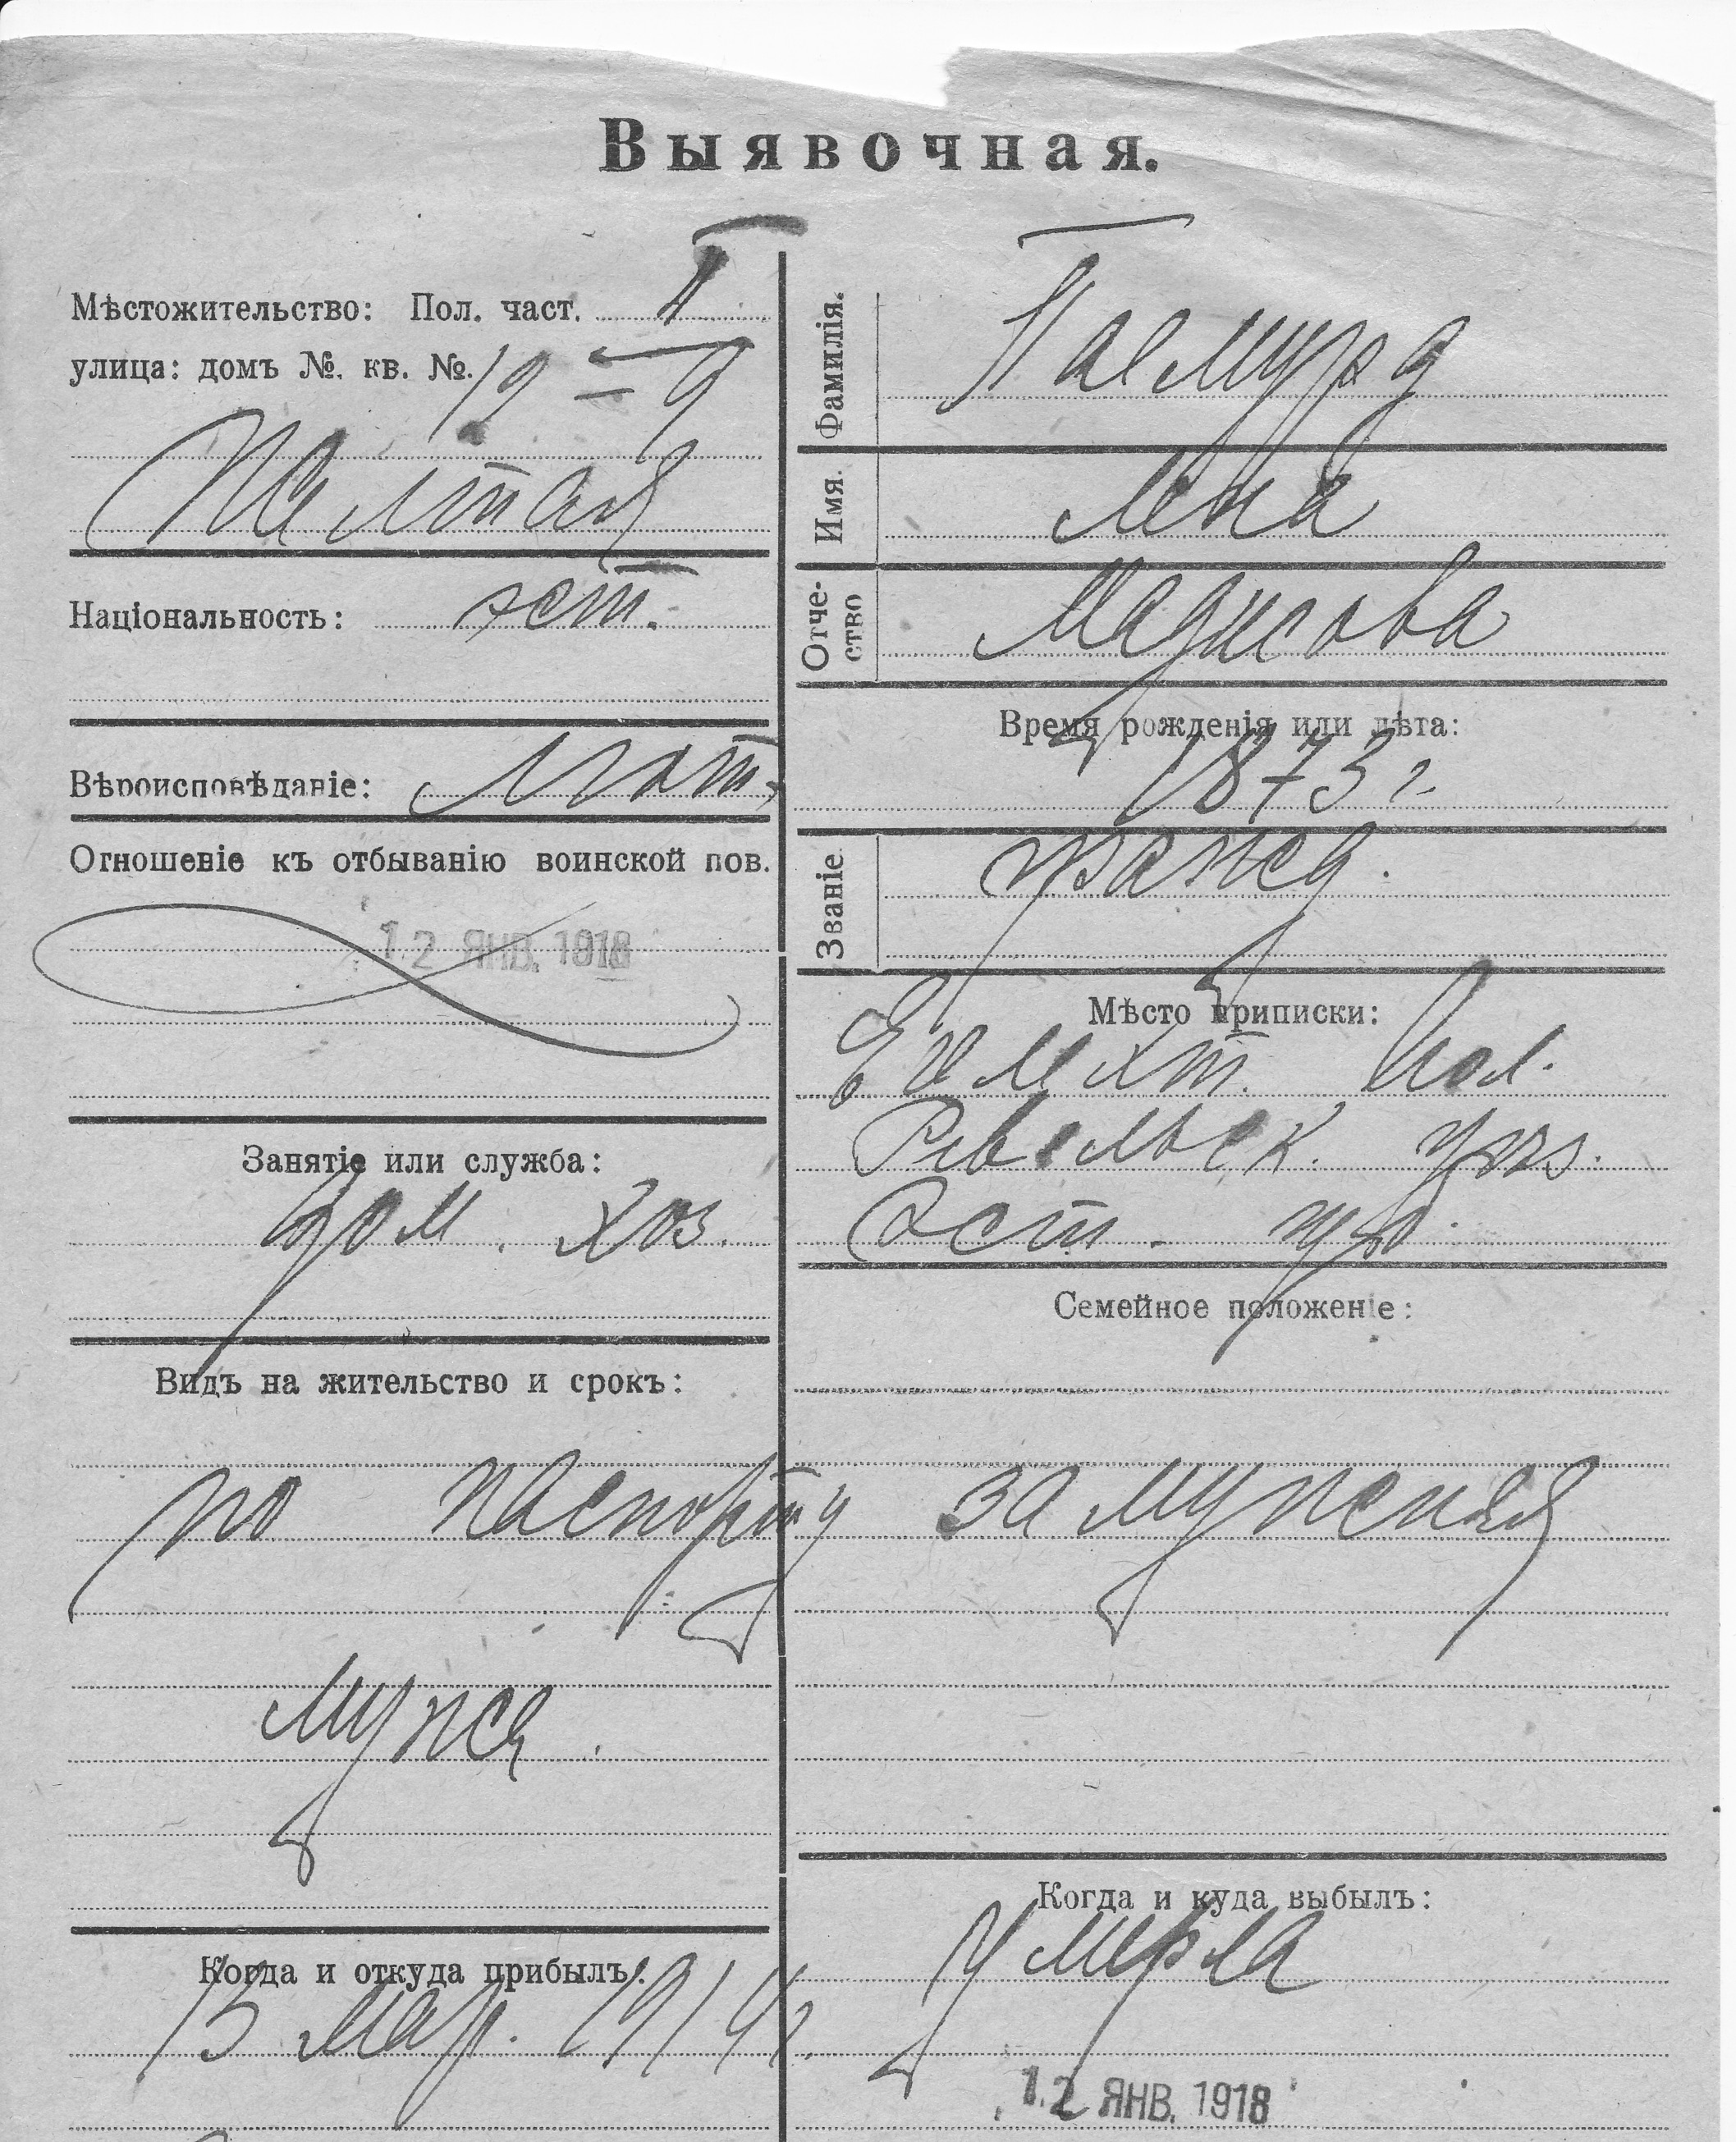 Выявочная.
Мѣстожительство: Пол. част. I
улица: домъ №. кв. №. 12 — 9
Желтая
Національность: эст.
Вѣроисповѣданіе: лют.
Отношеніе къ отбыванію воинской пов.
12 ЯНВ. 1918
Занятіе или служба:
дом. хоз.
Видъ на жительство и срокъ:
по паспорту
мужа.
Когда и откуда прибылъ:
15 мар. 1914 г.
Фамилія.
Имя. Лена
Отчество Мадисова
Время рожденія или лѣта:
1873 г.
Званіе гражд.
Мѣсто приписки:
вол.
Ревельск. уѣз.
Эст. губ.
Семейное положеніе:
замужняя
Когда и куда выбылъ:
Умерла
12 ЯНВ. 1918